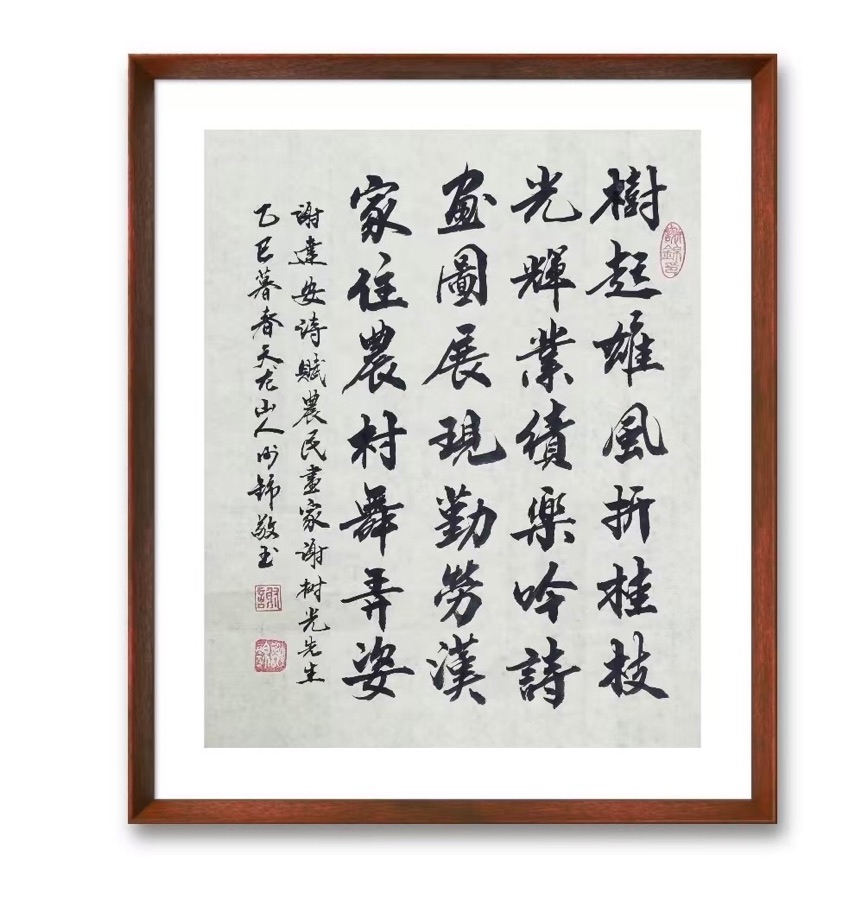 樹起雄風折桂枝
光輝業績樂吟詩
畫圖展現勤勞漢
家住農村舞弄姿
谢建安诗赋農民畫家谢树光先生
乙巳暮春天龙山人谢锦敬书